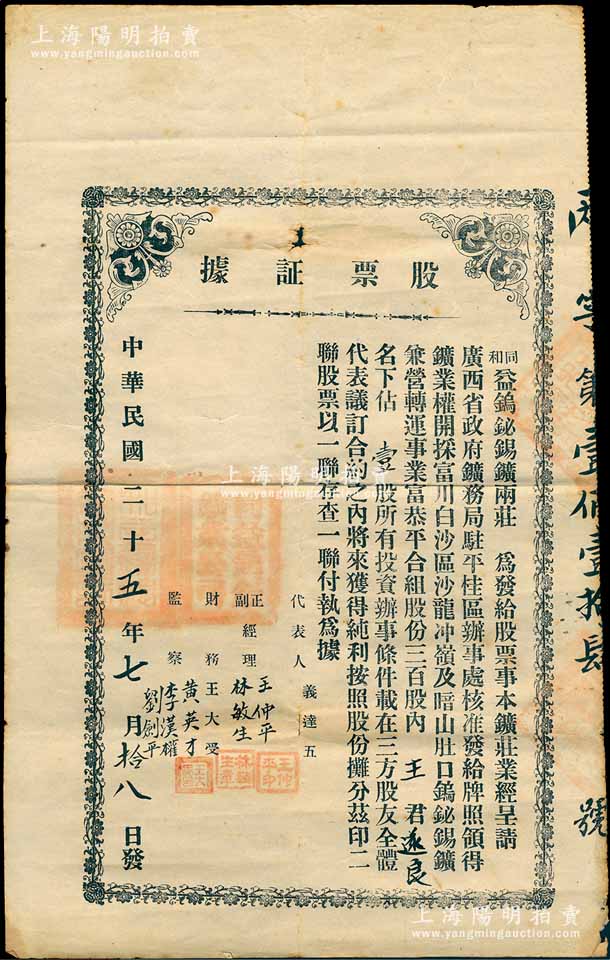 上海陽明拍賣
www.yangmingauction.com
股票証據
同和益鎢鉍錫鑛兩莊 為發給股票事本鑛莊業經呈請
廣西省政府鑛務局駐平桂區辦事處核准發給牌照領得
鑛業權開採富川白沙區沙龍冲嶺及暗山肚口鎢鉍錫鑛
兼營轉運事業富恭平合組股份三百股內 王 君遂良
名下佔 壹 股所有投資辦事條件載在三方股友全體
代表議訂合約之內將來獲得純利按照股份攤分茲印二
聯股票以一聯存查一聯付執為據
代表人 義達五
正副經理 王仲平 林敏生
財務 王大受 黃英才
監察 李漢權 劉劍平
中華民國二十五年七月拾八日發
字第壹佰壹拾肆號
上海陽明拍賣
www.yangmingauction.com
上海陽明拍賣
www.yangmingauction.com